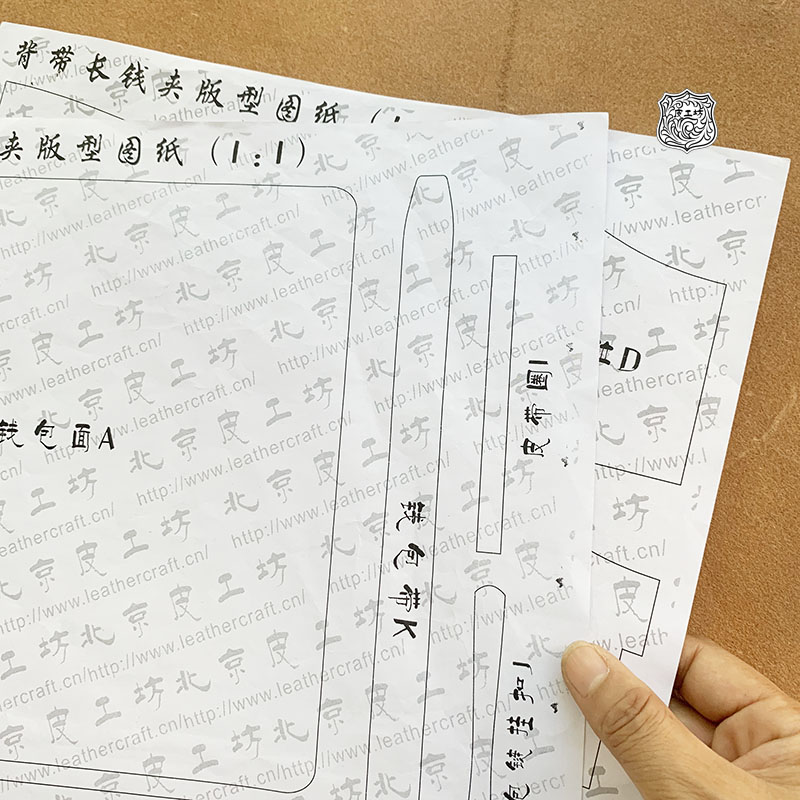 背带长钱夹版型图纸（1
夹版型图纸（1:1）
皮工坊
钱包面A
钱包带K
皮带圈I
包钱挂扣J
D
北京皮工坊
http://www.leathercraft.cn/